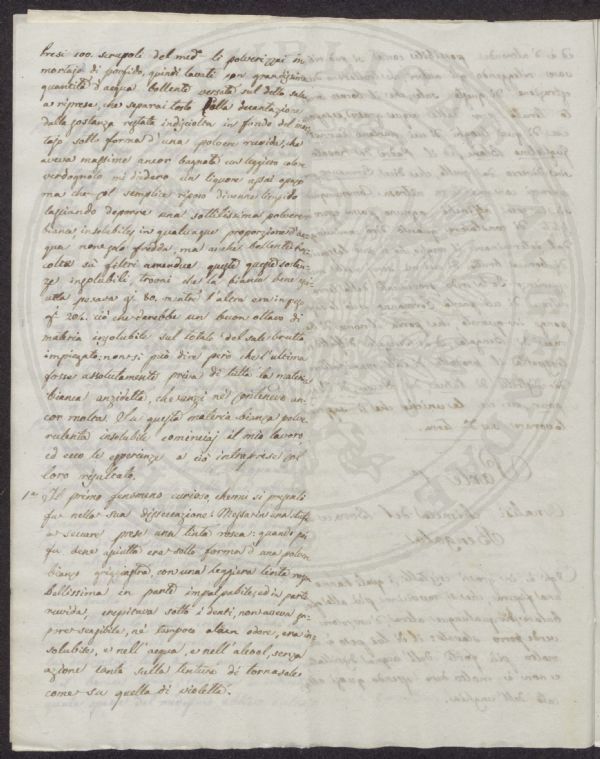 Presi 100. scrupoli del med.º li polverizzai in
mortajo di porfido, quindi lavati con grandissima
quantità d'acqua bollente versata sul detto sale
a riprese, che separai tosto dalla decantazione
dalla sostanza restata indisciolta in fondo del mor-
tajo sotto forma d'una polvere ruvida, che
aveva massime ancor bagnata un leggiero color
verdognolo mi diedero un liquore assai opaco
ma che col semplice riposo divenne limpido
lasciando deporre una sottilissima polvere
bianca insolubile in qualunque proporzione d'ac-
qua non solo fredda, ma anche bollente. Rac-
colte sù filtri amendue queste sostan-
ze insolubili, trovai che la bianca bene asci-
utta pesava g.ⁱ 80. mentre l'altra era in peso
g.ⁱ 204. ciò che darebbe un buon ottavo di
materia insolubile sul totale del sale bruto
impiegato; non si può dire però che l'ultima
fosse assolutamente priva di tutta la materia
bianca anzidetta, che anzi ne conteneva an-
cor molta. Su questa materia bianca polve-
rulenta insolubile cominciaj il mio lavoro
ed ecco le esperienze a ciò intraprese col
loro risultato.
1.ª Il primo fenomeno curioso, che mi si presentò
fu nella sua disseccazione: Messa in una stufa
a seccare prese una tinta rosea: quando poi
fu bene asciutta era sotto forma d'una polvere
bianco grigiastra, con una leggiera tinta rosea
bellissima in parte impalpabile, ed in parte
ruvida, crepitava sotto i denti, non aveva sa-
pore sensibile, nè tampoco alcun odore, era in-
solubile, e nell'acqua, e nell'alcool, senza
azione tanto sulla tintura di tornasole
come su quella di violette.